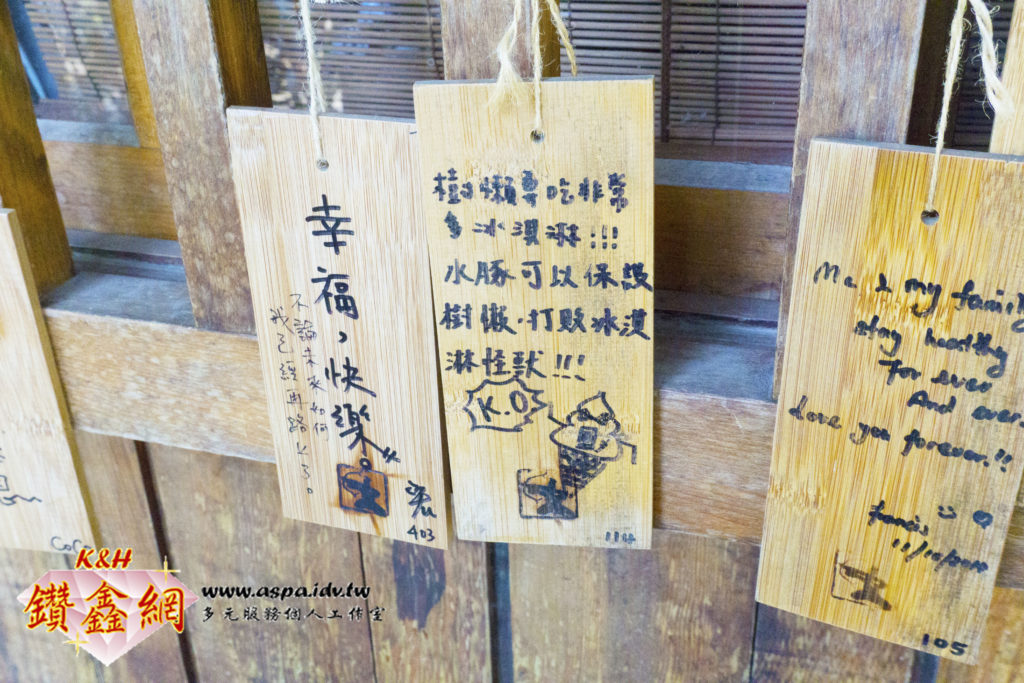 幸福，快樂
不論未來如何
我已經再路上了。
403
樹懶要吃非常
多冰淇淋!!!
水豚可以保護
樹懶．打敗冰淇
淋怪獸!!!
K.O
114
my family
stay healthy
For ever
And ever
Love you forever.!!
105
CoCo
K&H
鑽鑫網
www.aspa.idv.tw
多元服務個人工作室